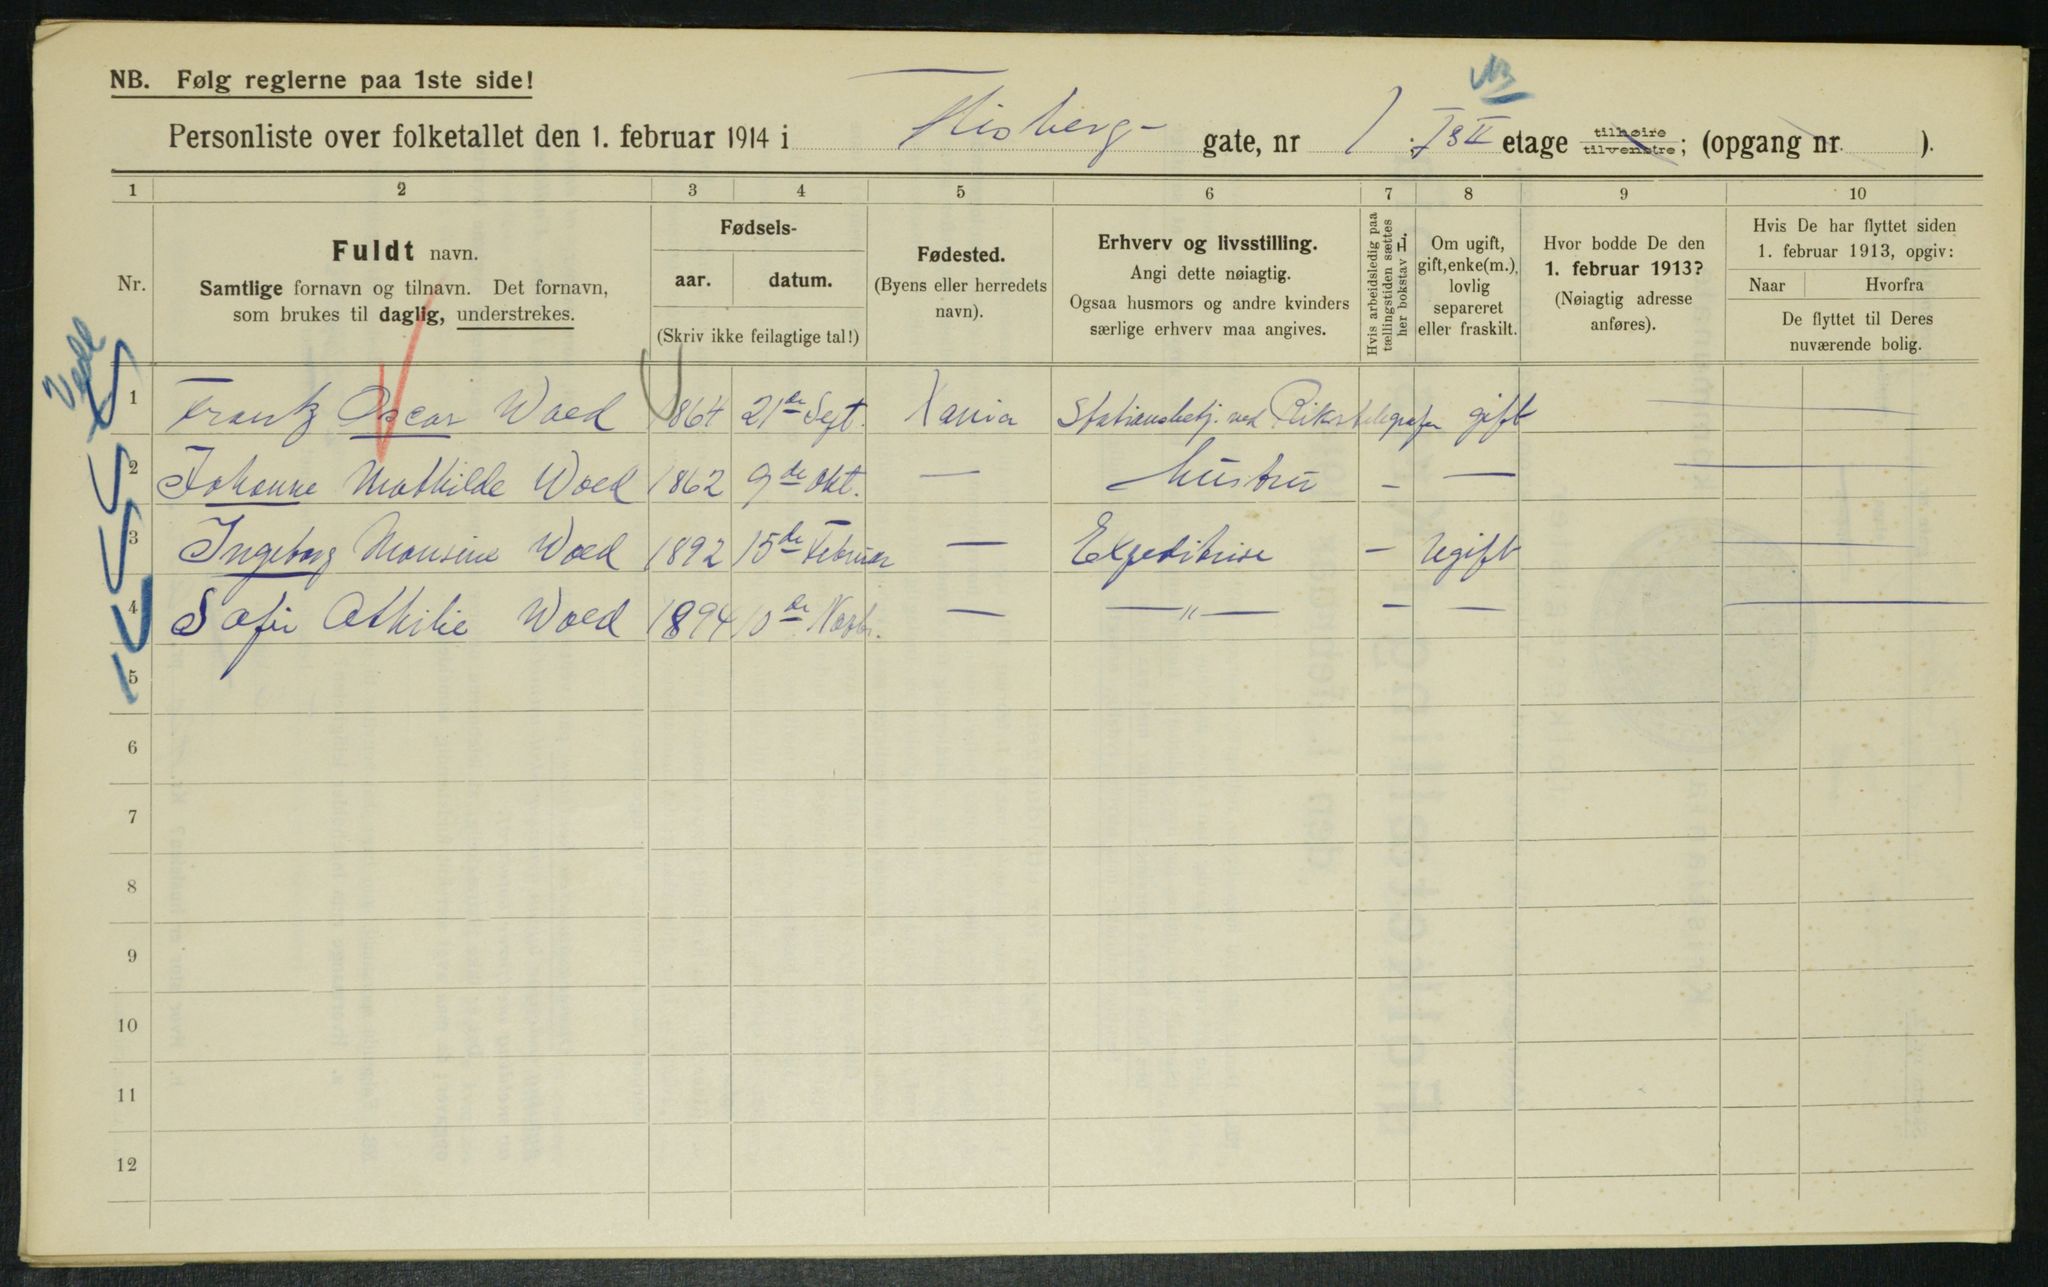 NB. Følg reglerne paa 1ste side!
Personliste over folketallet den 1. februar 1914 i Flisberg- gate, nr 1 ; I & II etage tilhøire tilvenstre; (opgang nr. ).
1 2 3 4 5 6 7 8 9 10
Nr.
Fuldt navn.
Samtlige fornavn og tilnavn. Det fornavn,
som brukes til daglig, understrekes.
Fødsels-
aar. datum.
(Skriv ikke feilagtige tal!)
Fødested.
(Byens eller herredets
navn).
Erhverv og livsstilling.
Angi dette nøiagtig.
Ogsaa husmors og andre kvinders
særlige erhverv maa angives.
Hvis arbeidsledig paa
tællingstiden sættes
her bokstav L.
Om ugift,
gift, enke(m.),
lovlig
separeret
eller fraskilt.
Hvor bodde De den
1. februar 1913?
(Nøiagtig adresse
anføres).
Hvis De har flyttet siden
1. februar 1913, opgiv:
Naar Hvorfra
De flyttet til Deres
nuværende bolig.
1 Frantz Oscar Woed 1864 21de Sept. Xania Stationsbetj. ved Rikstelegrafen gift —
2 Johanne Mathilde Woed 1862 9de Okt. — Hustru - — —
3 Ingeborg Monsine Woed 1892 15de Februar — Expeditrise - Ugift —
4 Sofie Othilie Woed 1894 10de Novbr. — —"— - — —
5
6
7
8
9
10
11
12